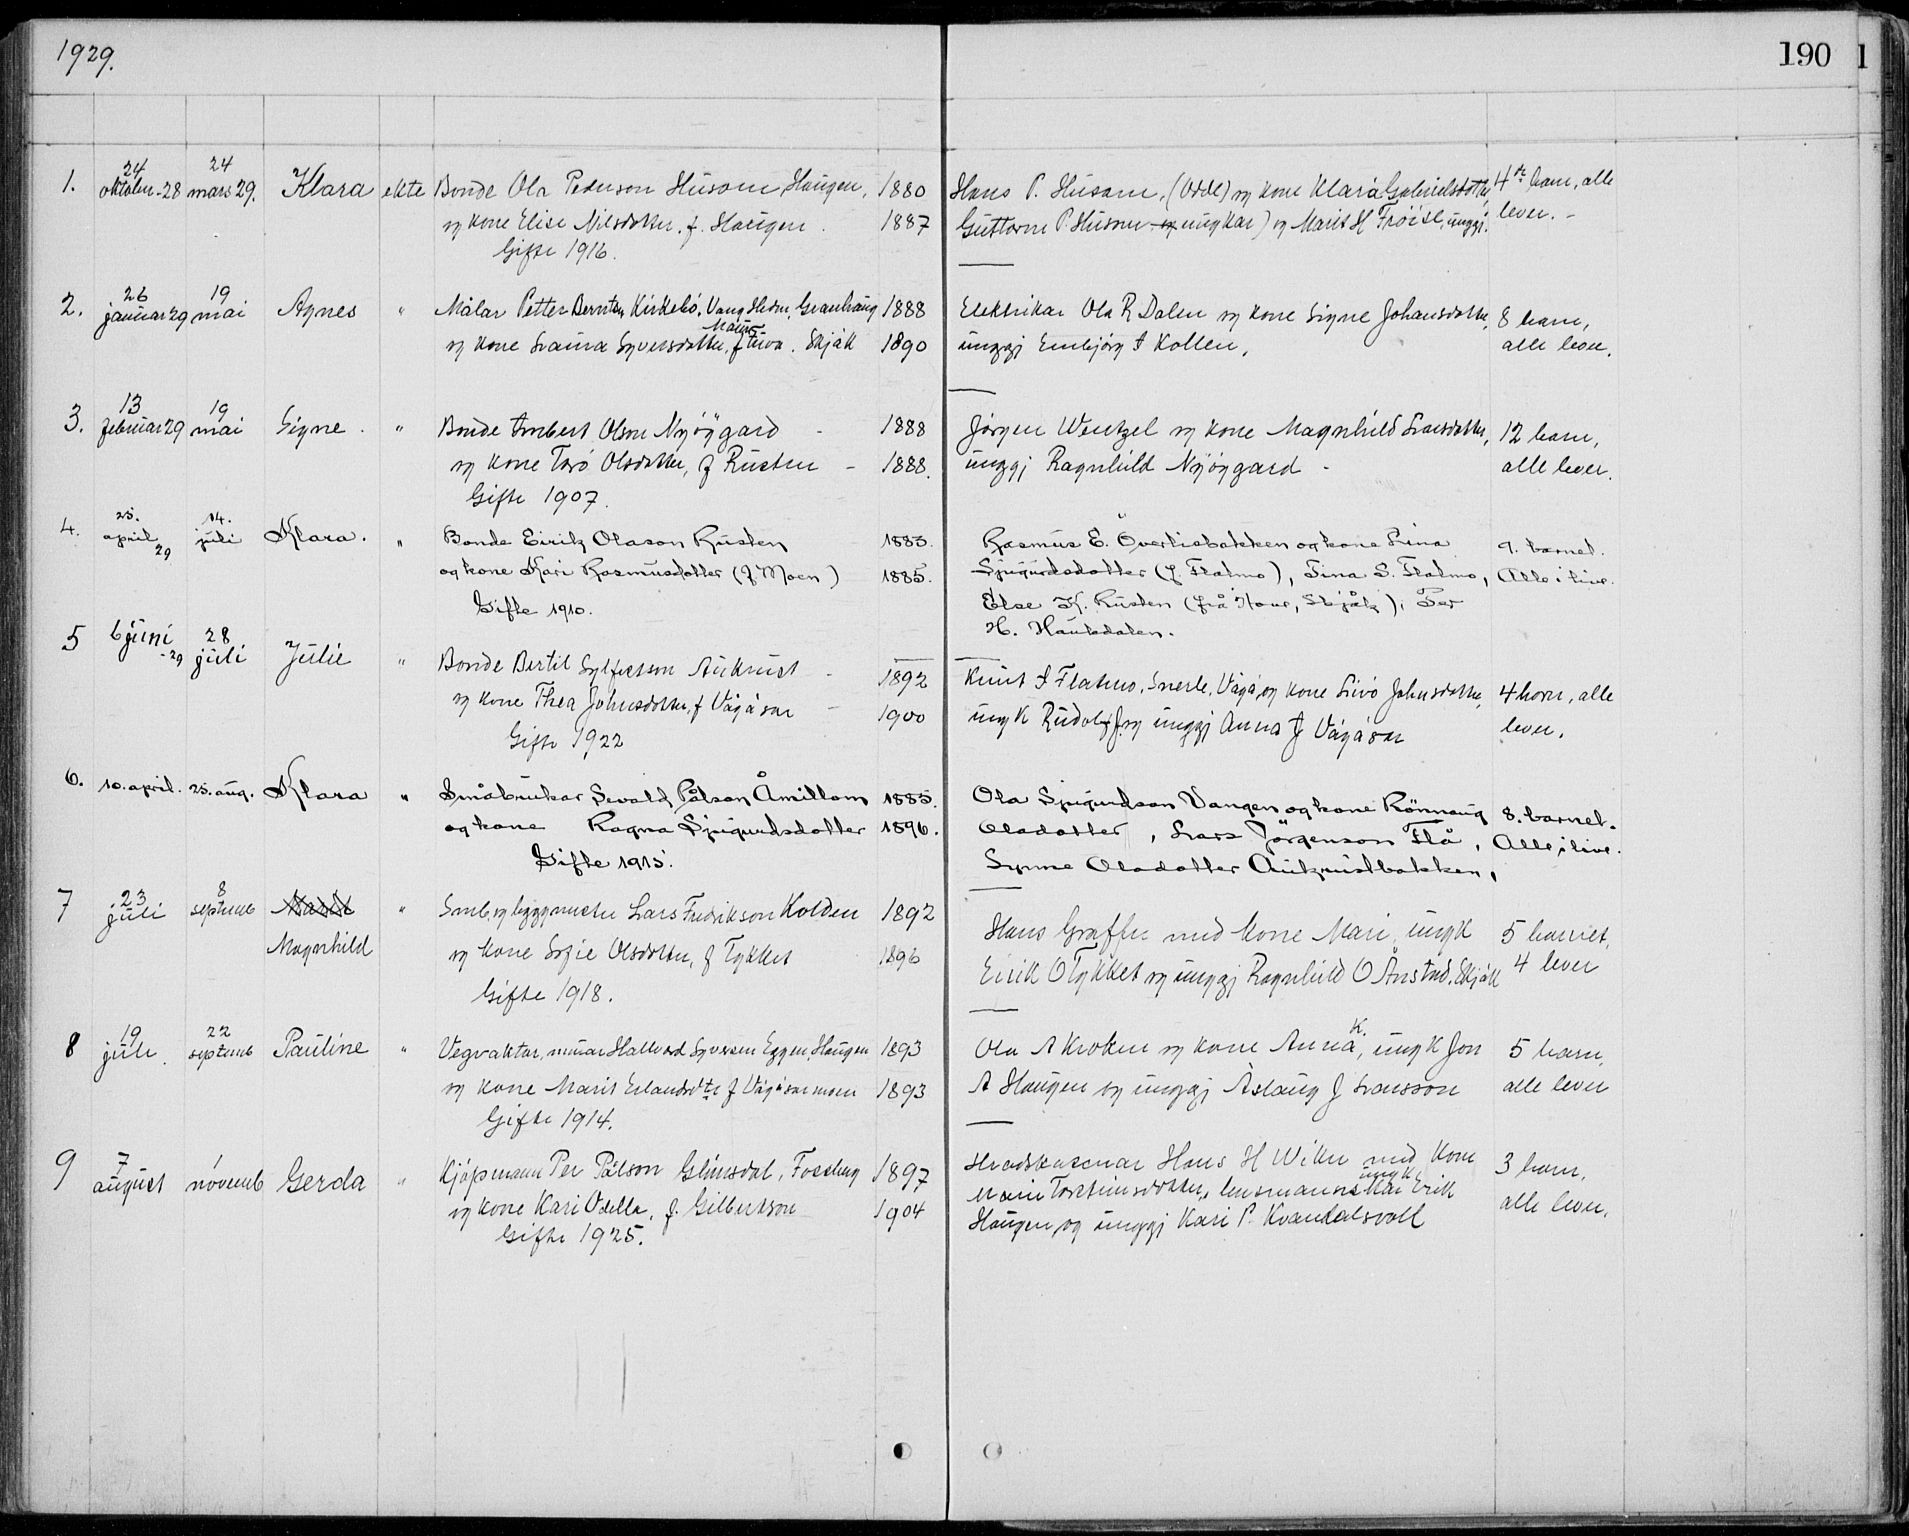 1929.
190
1
1. 24 oktober-28 24 mars 29. Klara ekte Bonde Ola Pederson Husom, Haugen, 1880 Hans P. Husom, (Odde) og kone Klara Gabrielsdotter, 4de barn, alle
og kone Elise Nilsdotter, f. Haugen. 1887 Guttorm P. Husom ungkar) og Marit H Frøise, unggj. lever. -
Gifte 1916.
2. 26 januar 29 19 mai Agnes " Målar Petter Berntsen Kirkebö, Vang Hedm. Granhaug 1888 Elektrikar Ola R Dalen og kone Signe Johansdotter, 8 barn,
og kone Syversdotter, f. Skjåk 1890 unggj Embjörg Kollen, alle lever.
3. 13 februar 29 19 mai Signe " Bonde Embert Olson Nyöygard - 1888 Jörgen Wentzel og kone Magnhild Larsdotter, 12 barn,
og kone Torö Olsdotter, f Rusten - 1888. unggj Ragnhild Nyöygard - alle lever.
Gifte 1907.
4. 25. april 29 14. juli Klara. " Bonde Eirik Olason Rusten 1883. Rasmus E. Överliebakken og kone Lina 9. barnet.
og kone Kari Rasmusdotter (f Moen) 1885. Sjugurdsdotter (f. Flatmo), Tina S. Flatmo, Alle i live.
Gifte 1910. Else K. Rusten (frå , Skjåk), Per
H. Haukdalen.
5 6 juni -29 28 juli Julie " Bonde Bertil Sylfestson Aukrust - 1892 Knut Flatmo, Snerle, Vågå, og kone Siivö Johnsdotter, 4 born, alle
og kone Thea Johnsdotter, f Vågåsar - 1900 ungk Rudolf J. og unggj Anna J Vågåsar lever.
Gifte 1922
6. 10. april. 25. aug. Klara " Småbrukar Sevald Pålson Åmillom 1885. Ola Sjugurdson Vangen og kone Rönnaug 8. barnet.
og kone Ragna Sjugurdsdotter 1896. Oladotter, Lars Jörgenson Flå, Alle i live.
Gifte 1915. Synne Oladotter Aukrustbakken,
7 23 juli 8 septemb Marit " Smb. og byggmester Lars Fredrikson Kolden 1892 Hans Graffer med kone Mari, ungk 5 barnet,
Magnhild og kone Sofie Olsdotter, f Tykket 1896 Eirik O Tykket og unggj Ragnhild O Ånstad, Skjåk 4 lever
Gifte 1918.
8 19 juli. 22 septemb Pauline " Vegvaktar, murar Hallvard Syversen Eggen, Haugen 1893 Ola A Kroken og kone Anna K., ungk Jon 5 barn,
og kone Marit Erlandsdtr f Vågåsarmoen 1893 A Haugen og unggj Åslaug J Larsson alle lever
Gifte 1914.
9 7 august 1 novemb Gerda " Kjøpmann Per Pålson Glimsdal, Fossberg 1897 Heradskaserar Hans H Wiker med kone 3 barn,
og kone Kari Odella, f. Gilbertson 1904 Marie Torsteinsdotter, lensmann ungkar Erik alle lever.
Gifte 1925. Haugen, og unggj Kari P. Kvandalsvoll